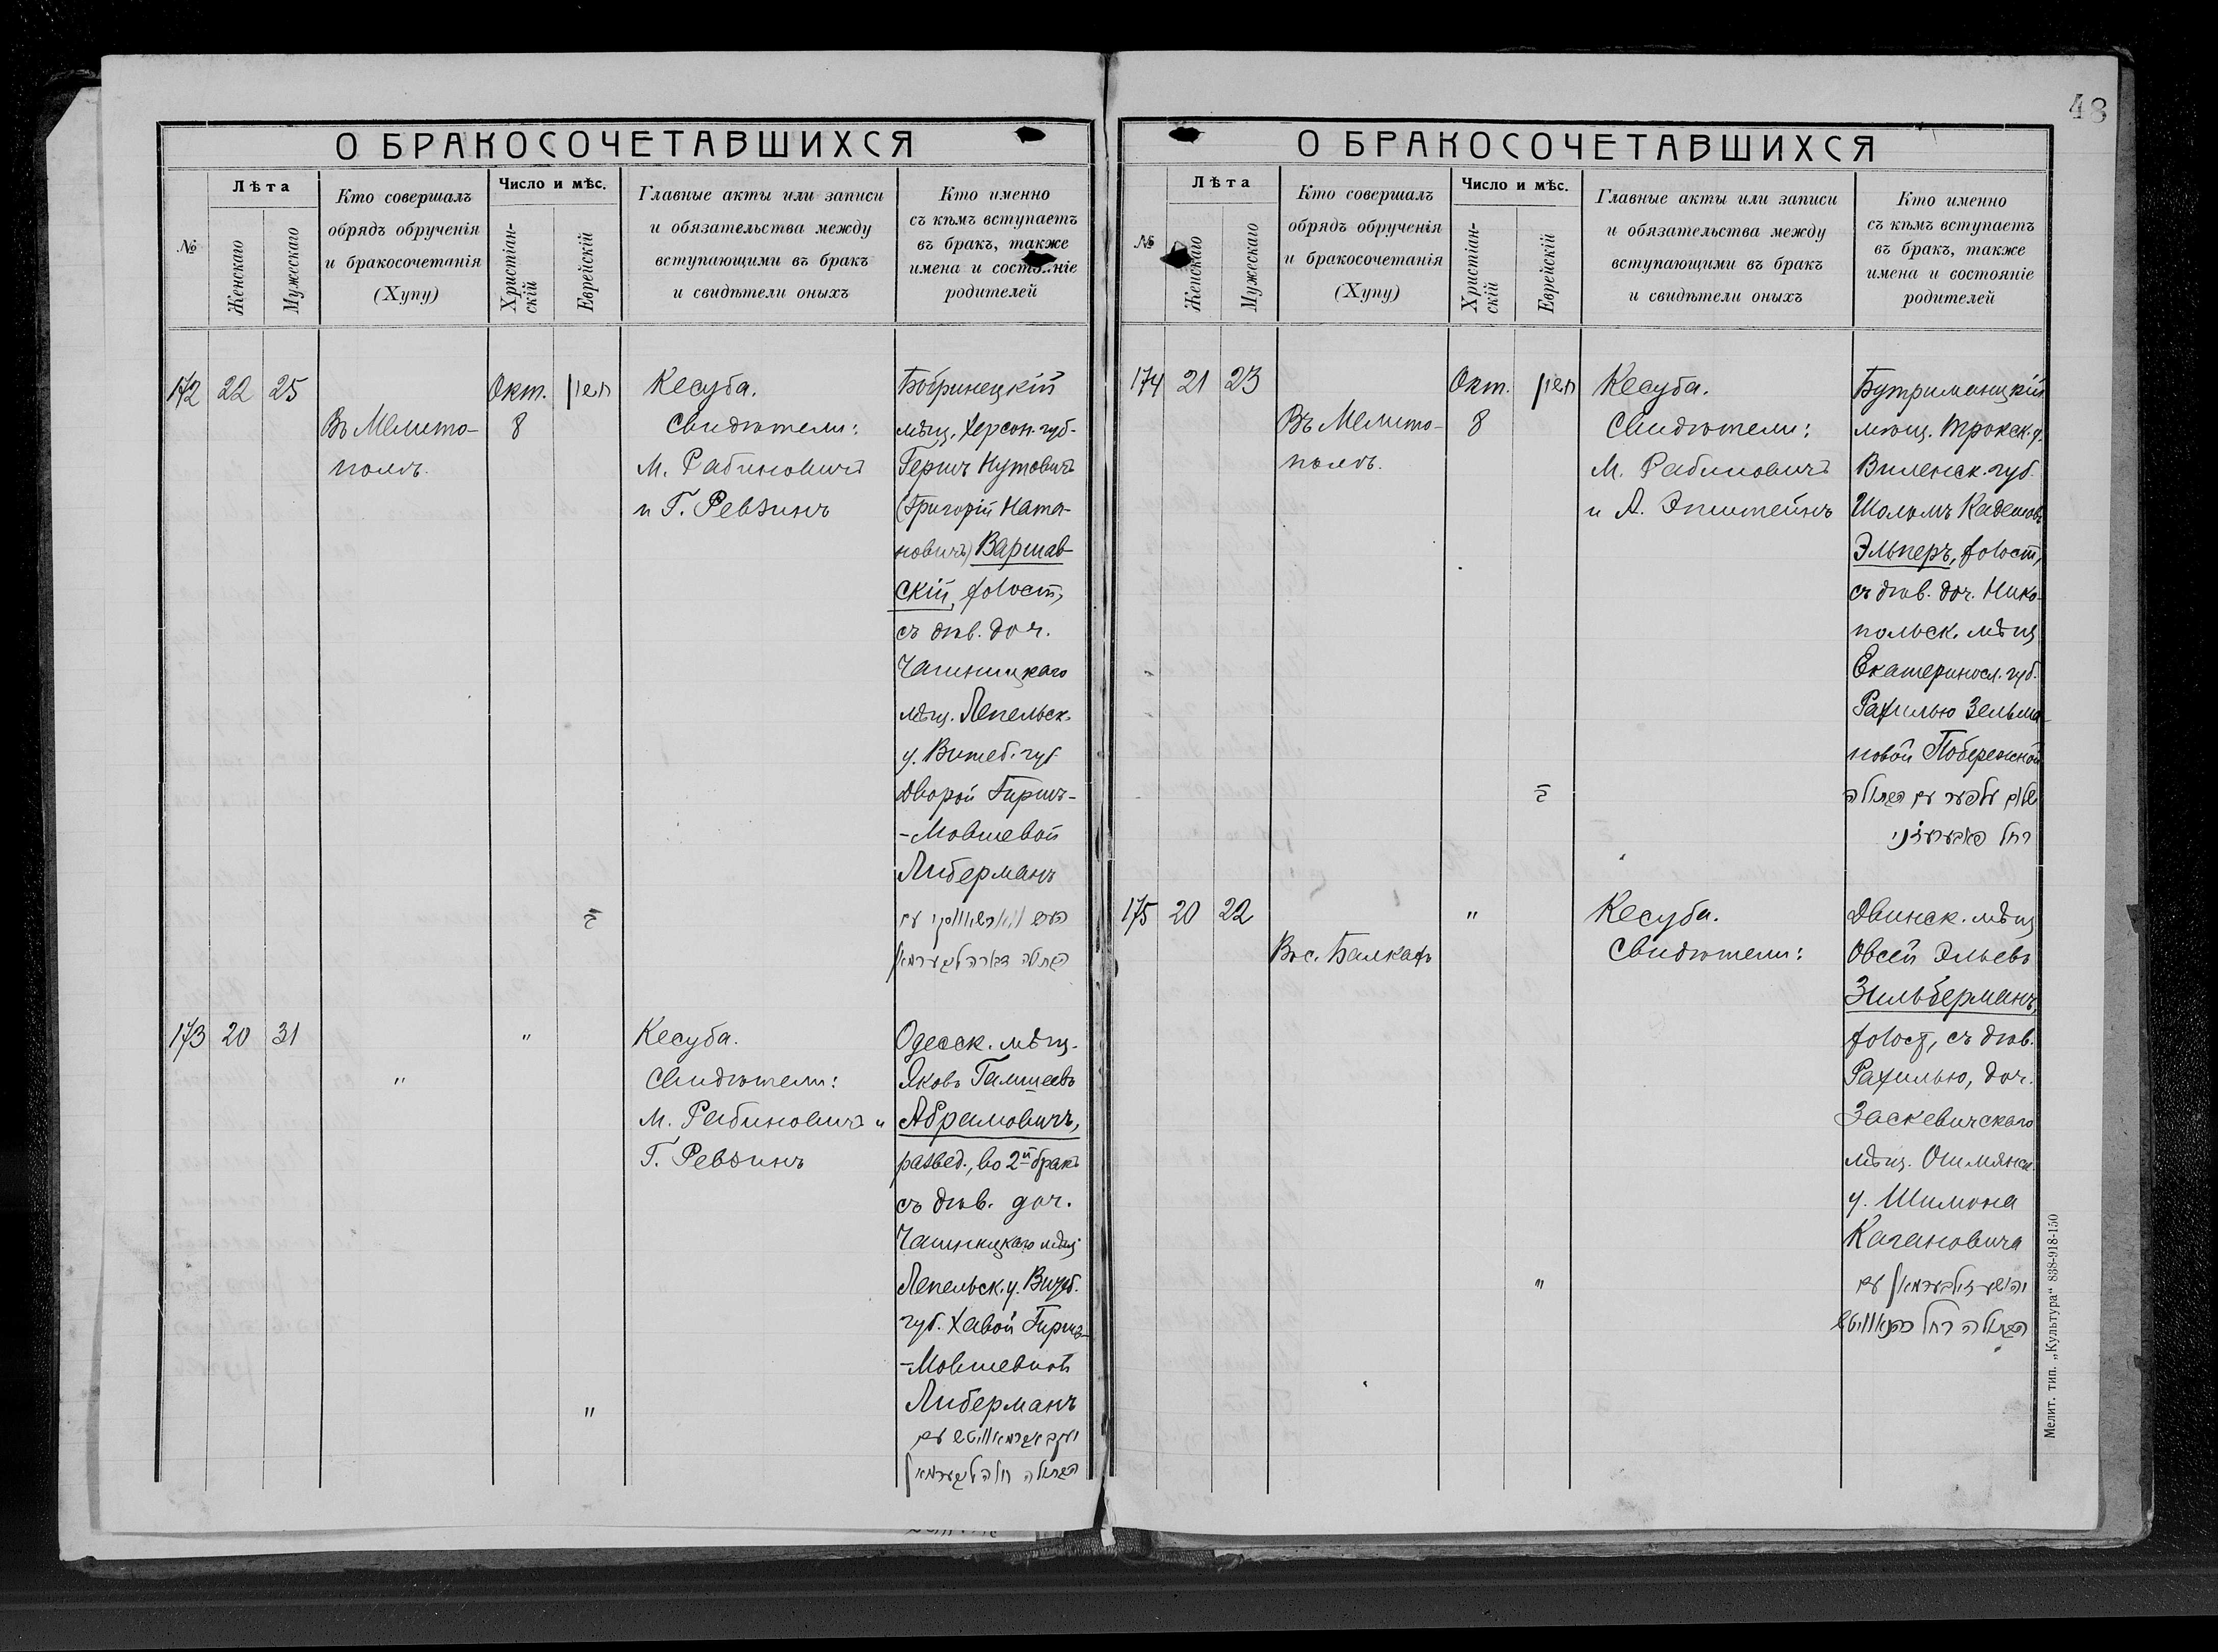 48
О БРАКОСОЧЕТАВШИХСЯ
№
Лѣта
Женскаго
Мужескаго
Кто совершалъ
обрядъ обрученія
и бракосочетанія
(Хупу)
Число и мѣс.
Христіан-
скій
Еврейскій
Главные акты или записи
и обязательства между
вступающими въ бракъ
и свидѣтели оныхъ
Кто именно
съ кѣмъ вступаетъ
въ бракъ, также
имена и состо..ніе
родителей
172 22 25
Въ Мелито-
полѣ.
Окт.
8
Кесуба.
Свидѣтели:
М. Рабиновичъ
и Г. Ревзинъ
Бобринецкій
мѣщ. Херсон. губ.
Гершъ Нутовичъ
(Григорій Ната-
новичъ) Варшав-
скій, холост,
съ дѣв. доч.
Чашницкаго
мѣщ. Лепельск.
у. Витеб. губ
Дворой Гирш-
-Мовшевой
Либерманъ
173 20 31
"
"
"
Кесуба.
Свидѣтели:
М. Рабиновичъ и
Г. Ревзинъ
Одесск. мѣщ.
Яковъ
Абрамовичъ,
развед., во 2й бракъ
съ дѣв. доч.
Чашницкаго мѣщ
Лепельск. у. Витеб.
губ. Хавой Гирш-
-Мовшевной
Либерманъ
О БРАКОСОЧЕТАВШИХСЯ
№
Лѣта
Женскаго
Мужескаго
Кто совершалъ
обрядъ обрученія
и бракосочетанія
(Хупу)
Число и мѣс.
Христіан-
скій
Еврейскій
Главные акты или записи
и обязательства между
вступающими въ бракъ
и свидѣтели оныхъ
Кто именно
съ кѣмъ вступаетъ
въ бракъ, также
имена и состояніе
родителей
174 21 23
Въ Мелито-
полѣ.
Окт.
8
Кесуба.
Свидѣтели:
М. Рабиновичъ
и А. Эпштейнъ
Бутриманцкій
мѣщ. Трокск. у.
Виленск. губ.
Шоломъ
Эльперъ, холост,
съ дѣв. доч. Нико-
польск. мѣщ
Екатериносл. губ.
Рахилью Зельма-
новой Побережской
175 20 22
Въ с. Балкахъ
"
"
Кесуба.
Свидѣтели:
Двинск. мѣщ
Овсей Эльевъ
Зильберманъ,
холост, съ дѣв.
Рахилью, доч.
Заскевичскаго
мѣщ. Ошмянск.
у. Шимона
Кагановича
Мелит. тип. „Культура" 838-918-150